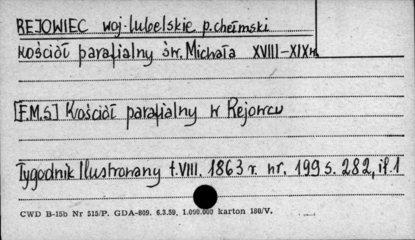 REJOWIEC woj. lubelskie p. chełmski
Kościół parafialny św. Michała XVIII-XIXw.
[F.M.S] Kościół parafialny w Rejowcu
Tygodnik Ilustrowany t. VIII. 1863 r. nr. 199 s. 282, il. 1
CWD B-15b Nr 515/P. GDA-809. 6.3.59. 1.090.000 karton 180/V.